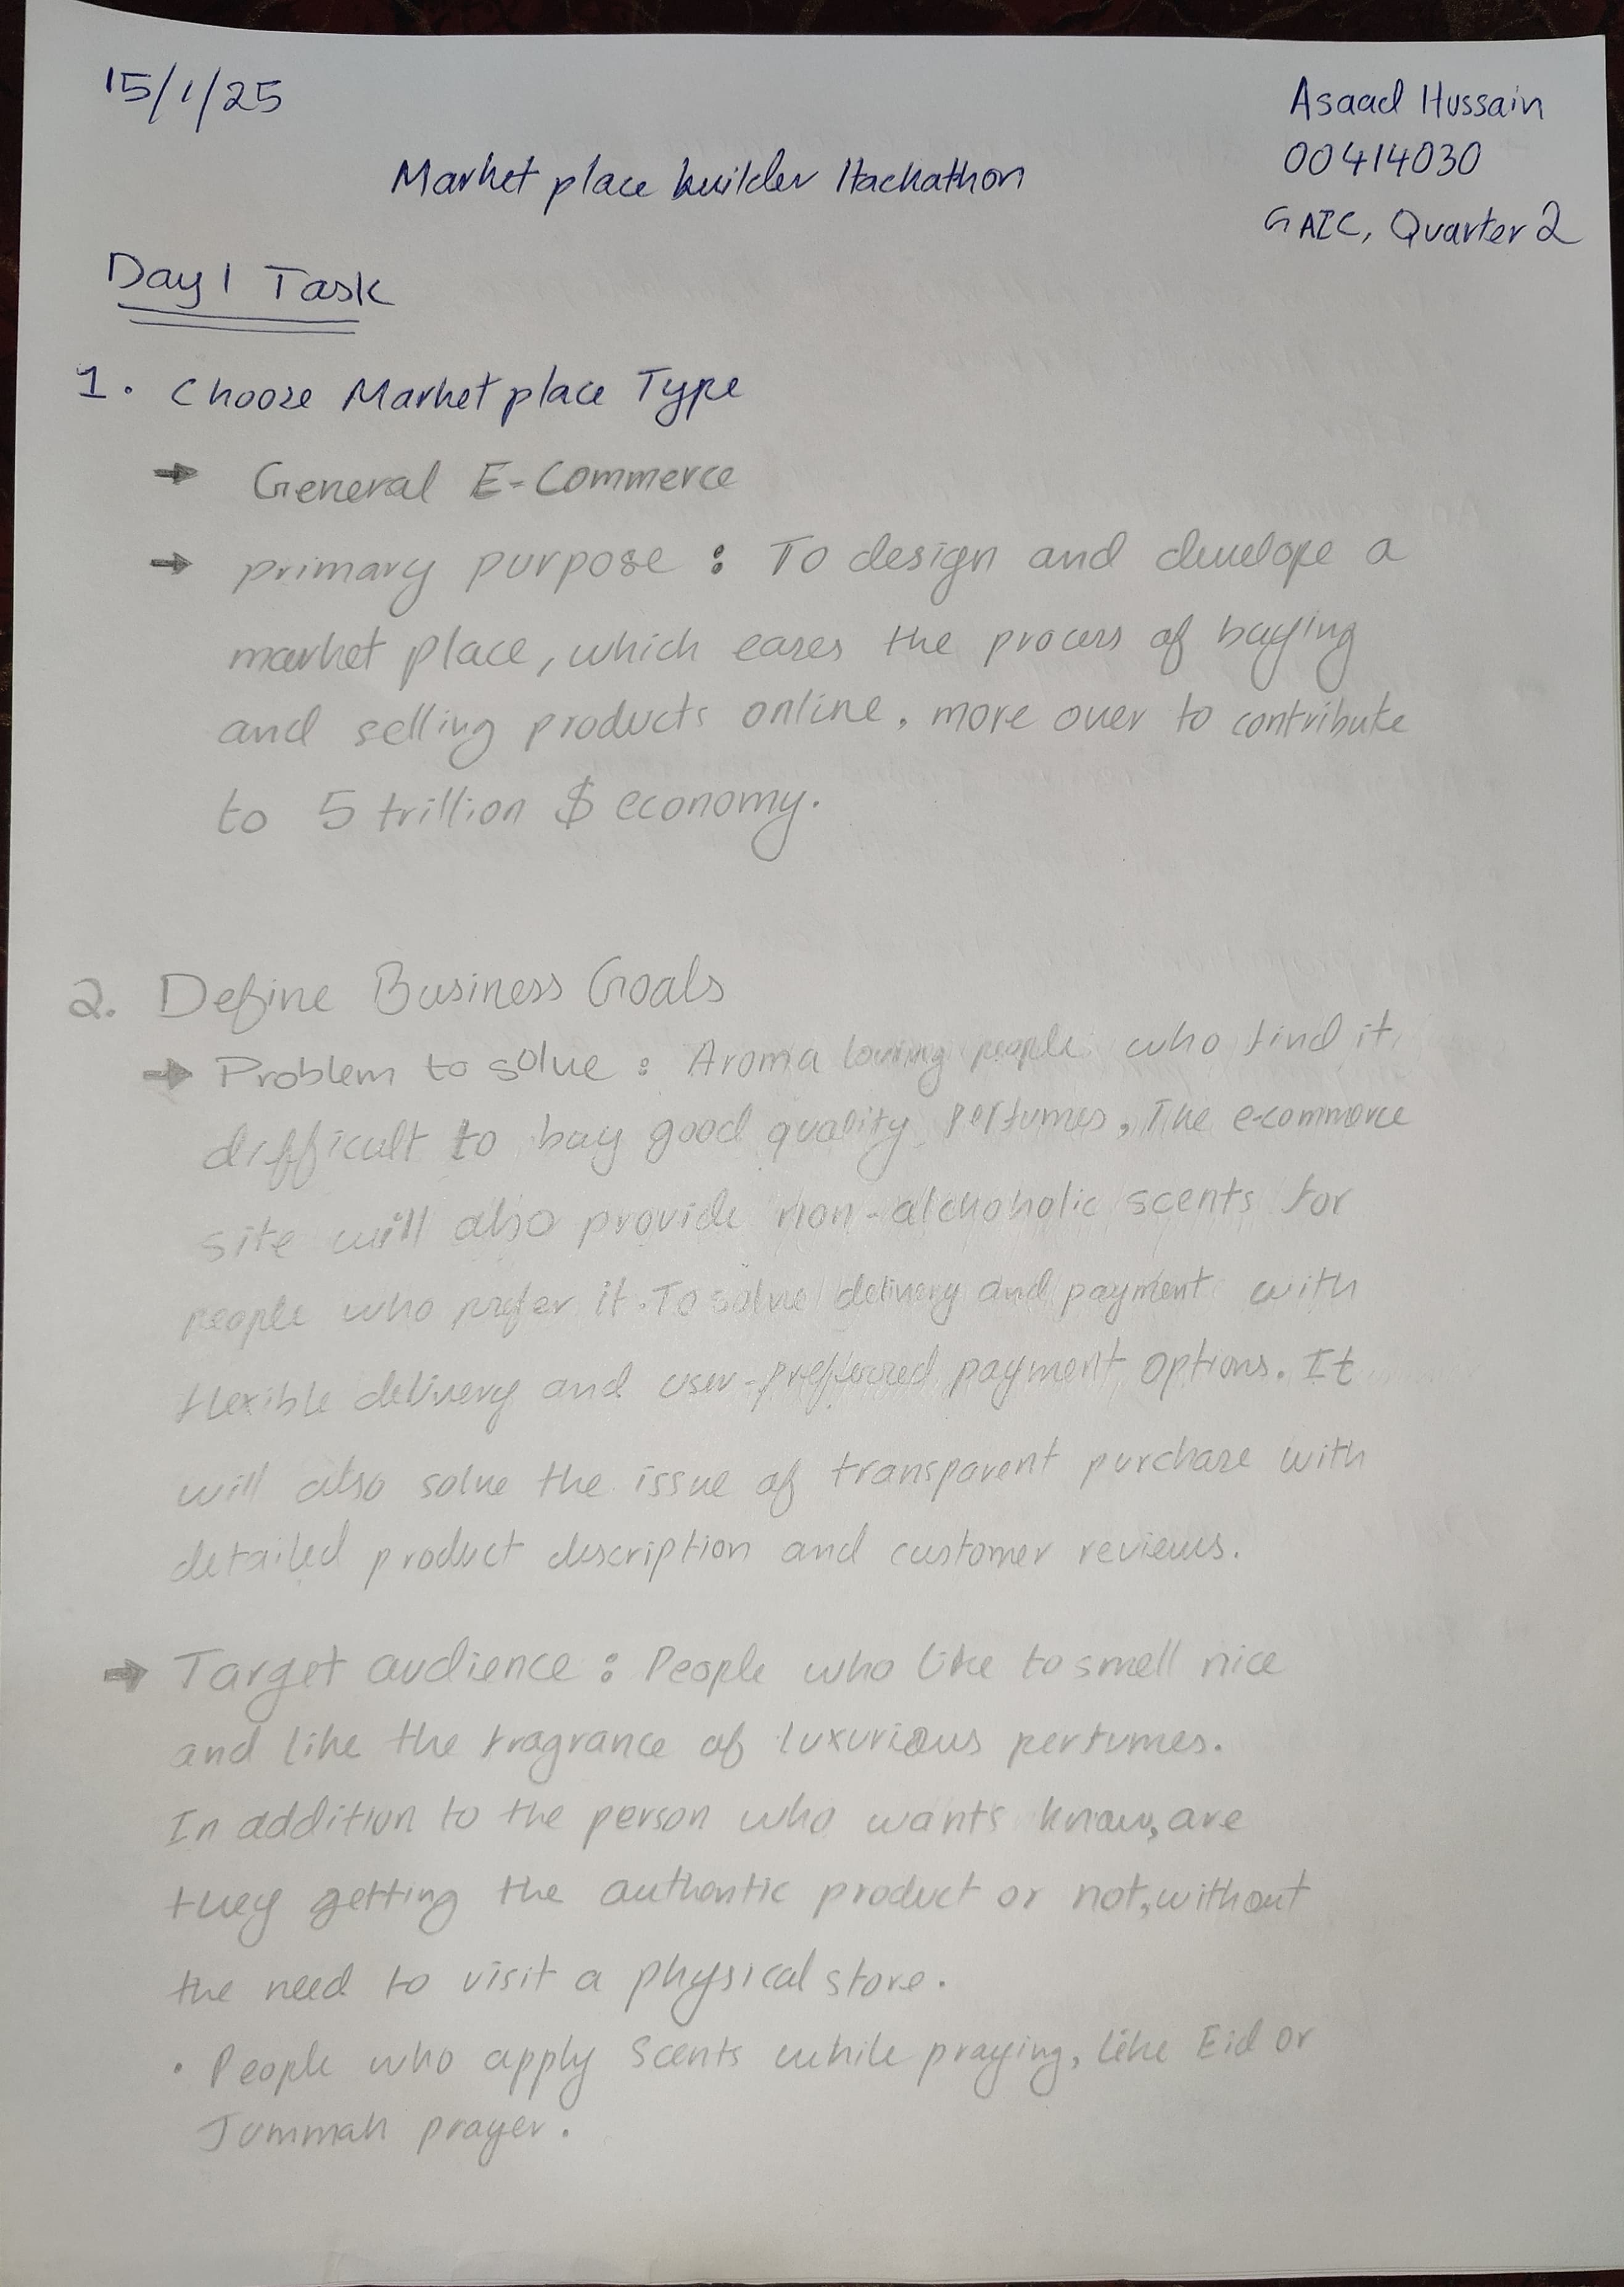 15/1/25
Asaad Hussain
00414030
Market place builder Hackathon
GAIC, Quarter 2
Day 1 Task
1. Choose Market place Type
→ General E-Commerce
→ primary purpose : To design and develope a
market place, which eases the process of buying
and selling products online, more over to contribute
to 5 trillion $ economy.
2. Define Business Goals
→ Problem to solve : Aroma loving people who find it
difficult to buy good quality perfumes, The e-commerce
site will also provide non-alchoholic scents for
people who prefer it. To solve delivery and payment with
flexible delivery and user-preferred payment options. It
will also solve the issue of transparent purchase with
detailed product description and customer reviews.
→ Target audience : People who like to smell nice
and like the fragrance of luxurious perfumes.
In addition to the person who wants know, are
they getting the authentic product or not, without
the need to visit a physical store.
• People who apply Scents while praying, like Eid or
Jummah prayer.